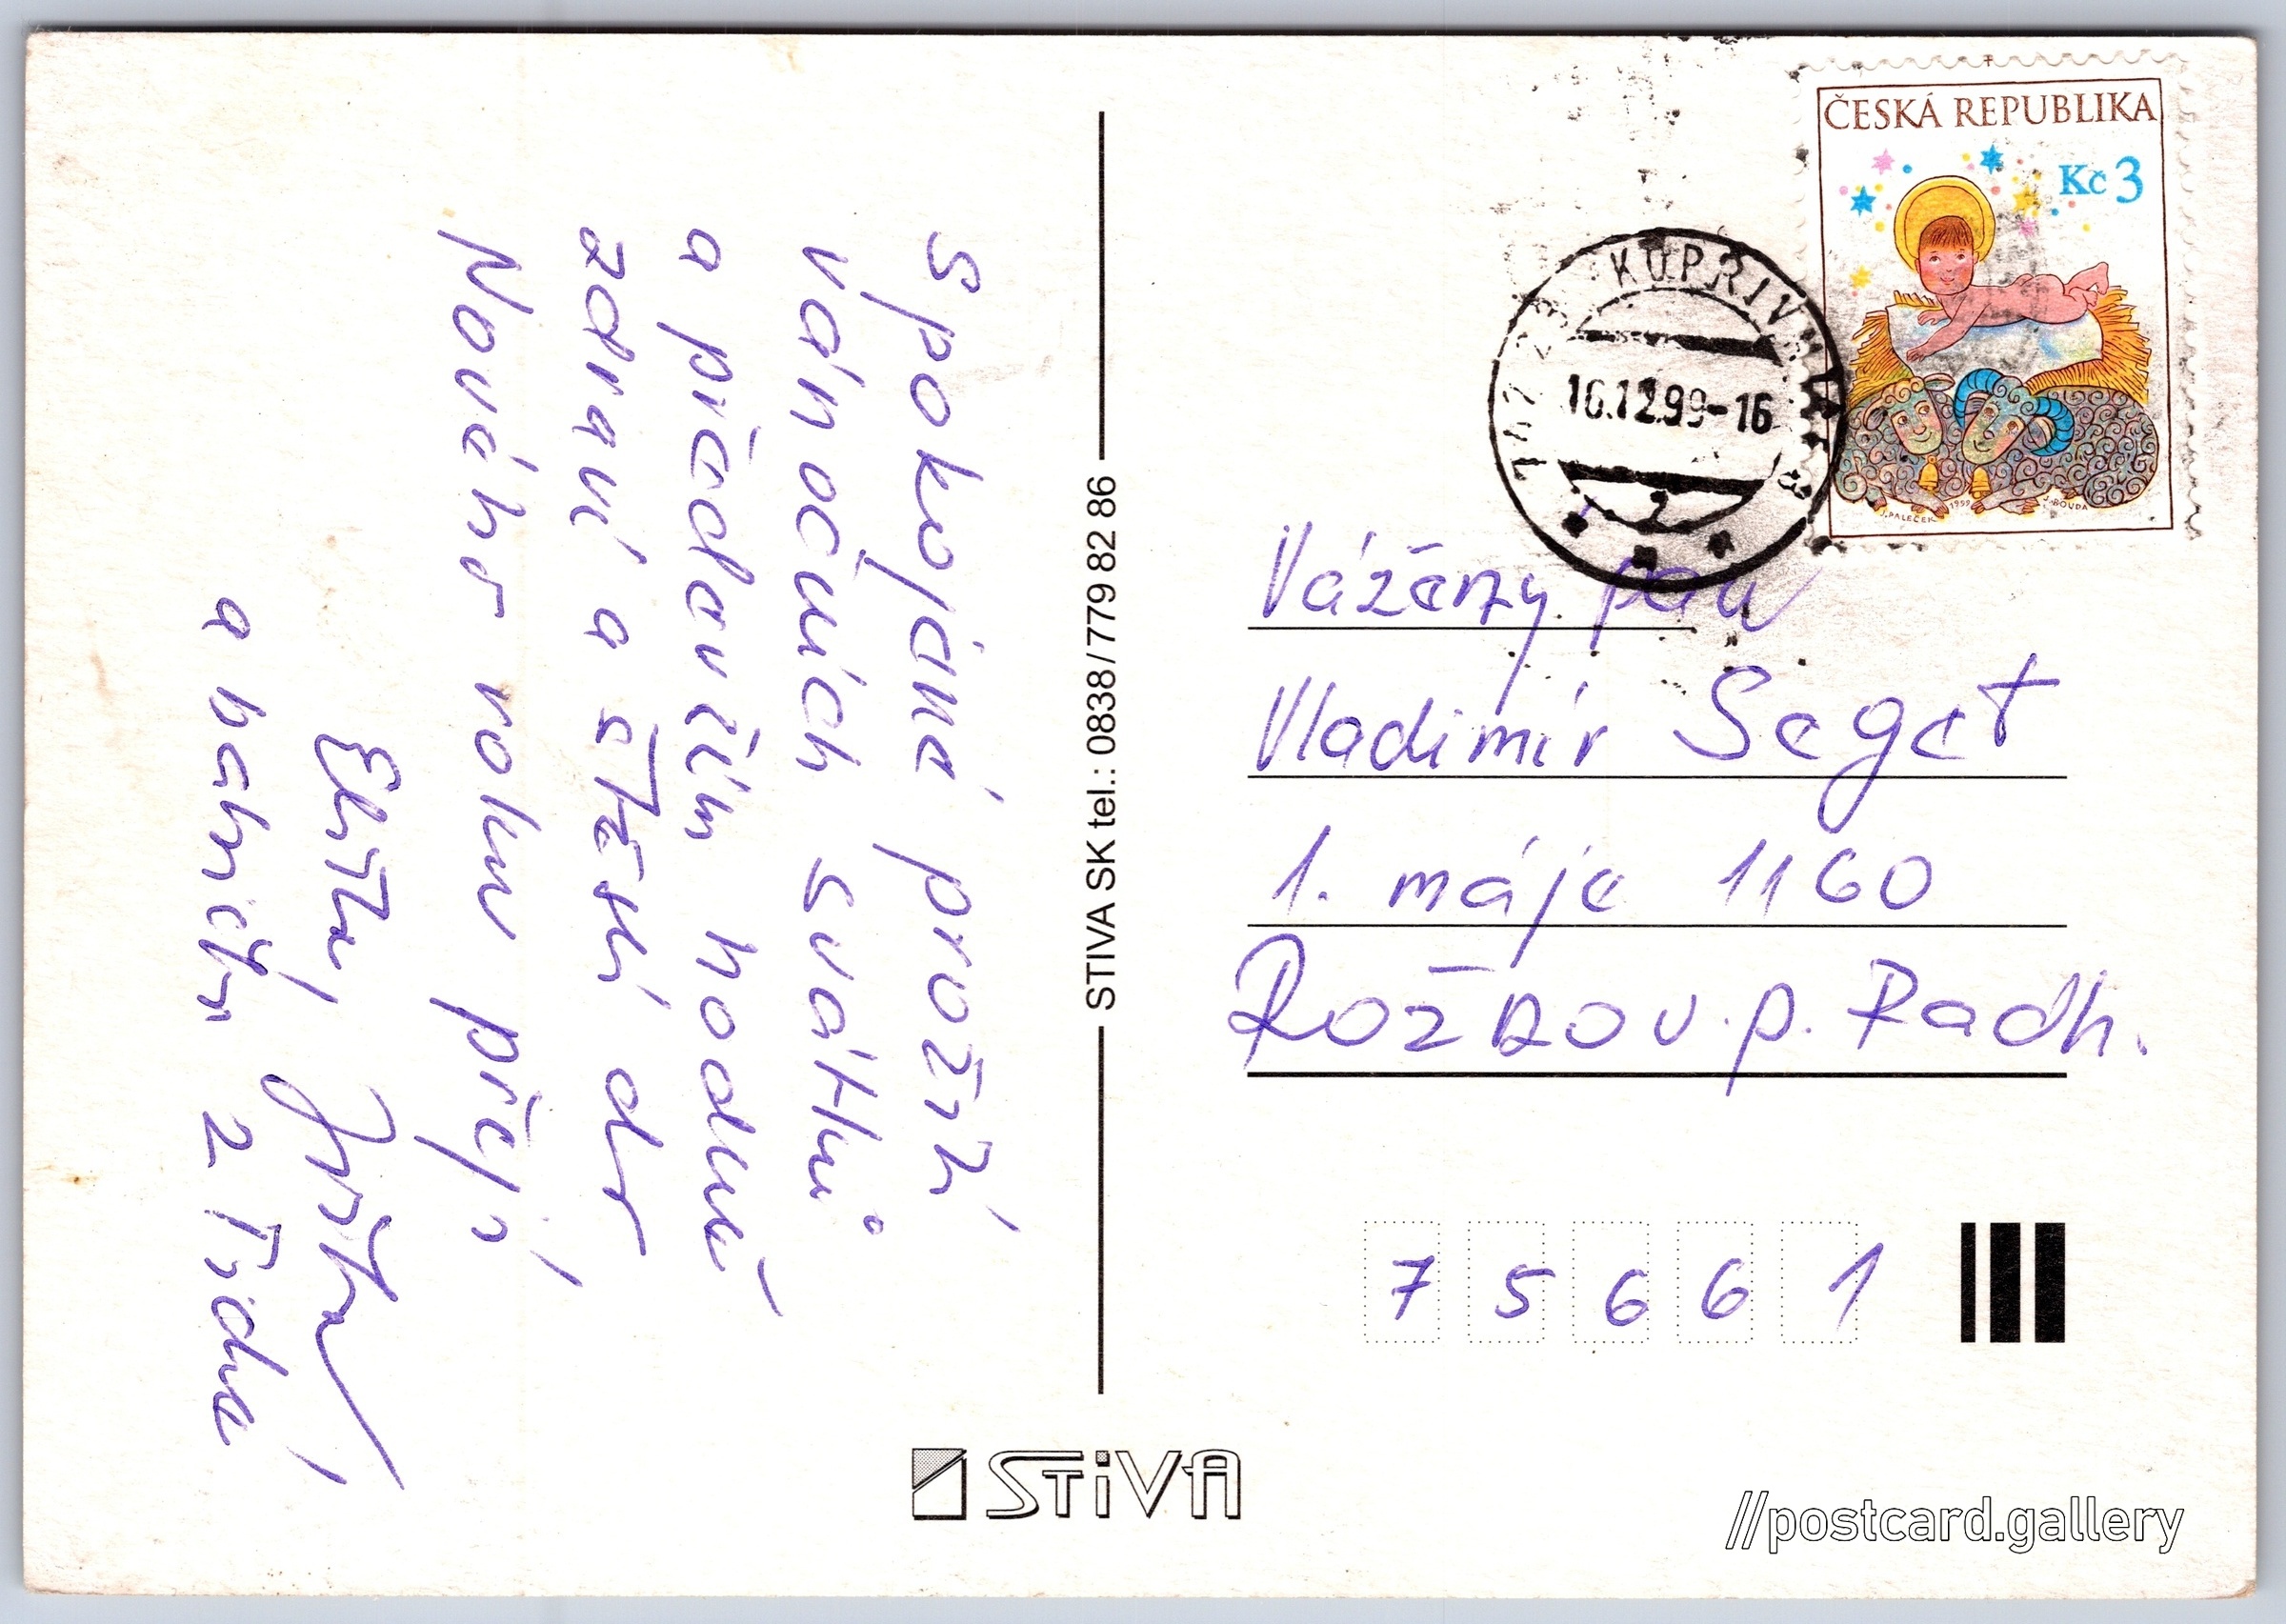 Spokojené prožití
vánočních svátků
a především hodně
zdraví a štěstí do
Nového roku přejí
Eliška, Jiřík
a babička z Frýdku
STIVA SK tel.: 0838/779 82 86
STiVA
ČESKÁ REPUBLIKA
Kč 3
J. PALEČEK 1999 J. BOUDA
KOPŘIVNICE
742 23
16.12.99-16
Vážený pan
Vladimír Seget
1. máje 1160
Rožnov. p. Radh.
7 5 6 6 1
//postcard.gallery